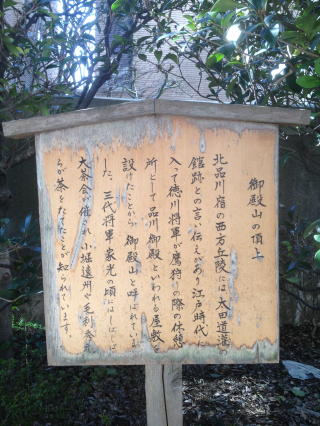 御殿山の頂上
北品川宿の西方丘陵には、太田道灌の
館跡との言い伝えがあり江戸時代に
入って徳川将軍が鷹狩の際の休憩
所として品川御殿といわれる屋敷を
設けたことから御殿山と呼ばれていま
した。三代将軍家光の頃にはしばしば
大茶会が催され、小堀遠州や毛利秀元
らが茶をたてたことが知られています。